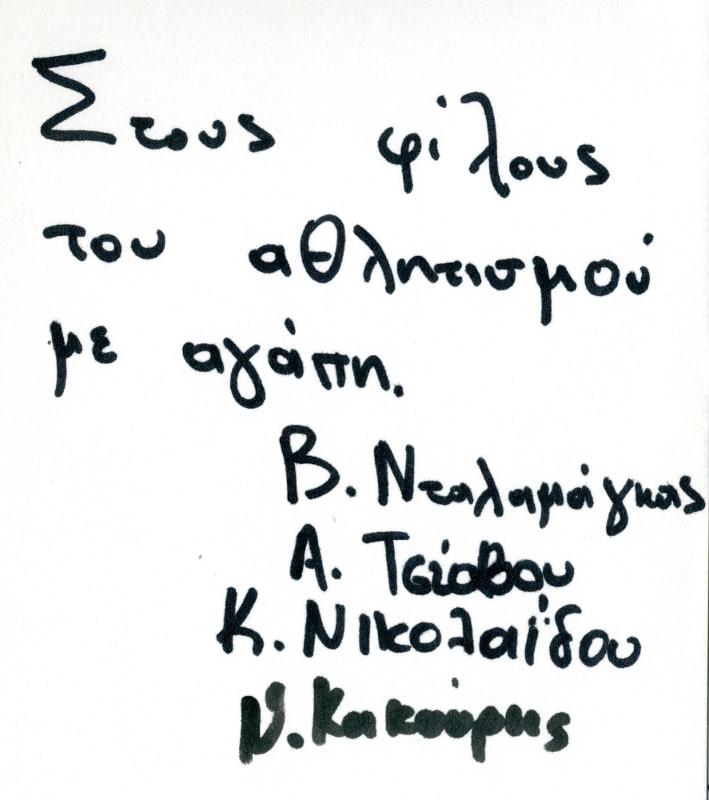 Στους φίλους
του αθλητισμού
με αγάπη.
Β. Νταλαμάγκας
Α. Τσιόβου
Κ. Νικολαΐδου
Ν. Κακούρης